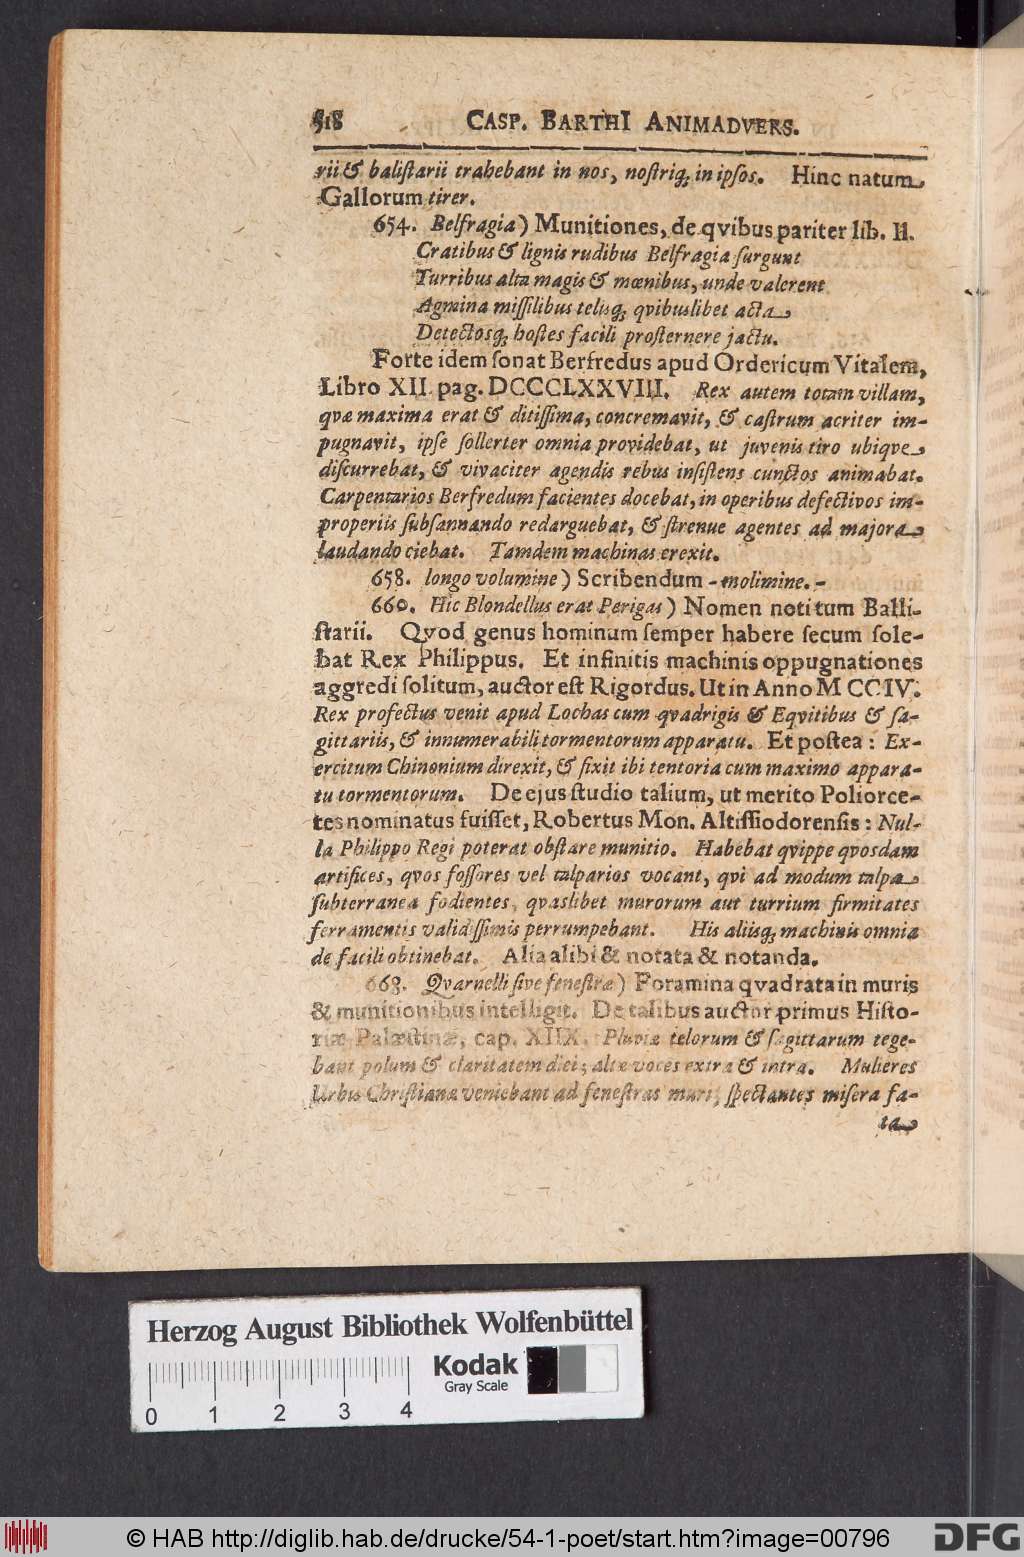 518 CASP. BARTHI ANIMADVERS.
rii & baliſtarii trahebant in nos, noſtriq; in ipſos. Hinc natum
Gallorum tirer.
654. Belfragia) Munitiones, de qvibus pariter lib. II.
Cratibus & lignis rudibus Belfragia ſurgunt
Turribus alta magis & mœnibus, unde valerent
Agmina miſſilibus telisq; qvibuslibet acta
Detectosq; hoſtes facili proſternere jactu.
Forte idem ſonat Berfredus apud Ordericum Vitalem,
Libro XII. pag. DCCCLXXVIII. Rex autem totam villam,
qvæ maxima erat & ditiſſima, concremavit, & caſtrum acriter im-
pugnavit, ipſe ſollerter omnia providebat, ut juvenis tiro ubiqve
diſcurrebat, & vivaciter agendis rebus inſiſtens cunctos animabat.
Carpentarios Berfredum facientes docebat, in operibus defectivos im-
properiis ſubſannando redarguebat, & ſtrenue agentes ad majora
laudando ciebat. Tamdem machinas erexit.
658. longo volumine) Scribendum - molimine. -
660. Hic Blondellus erat Perigas) Nomen noti tum Balli-
ſtarii. Qvod genus hominum ſemper habere ſecum ſole-
bat Rex Philippus. Et infinitis machinis oppugnationes
aggredi ſolitum, auctor eſt Rigordus. Ut in Anno M CCIV.
Rex profectus venit apud Lochas cum qvadrigis & Eqvitibus & ſa-
gittariis, & innumerabili tormentorum apparatu. Et poſtea: Ex-
ercitum Chinonium direxit, & fixit ibi tentoria cum maximo appara-
tu tormentorum. De ejus ſtudio talium, ut merito Poliorce-
tes nominatus fuiſſet, Robertus Mon. Altiſſiodorenſis: Nul-
la Philippo Regi poterat obſtare munitio. Habebat qvippe qvosdam
artifices, qvos foſſores vel talparios vocant, qvi ad modum talpa
ſubterranea fodientes, qvaslibet murorum aut turrium firmitates
ferramentis validiſſimis perrumpebant. His aliisq; machinis omnia
de facili obtinebat. Alia alibi & notata & notanda.
663. Qvarnelli ſive feneſtræ) Foramina qvadrata in muris
& munitionibus intelligit. De talibus auctor primus Hiſto-
riæ Palæſtinæ, cap. XIIX. Pluviæ telorum & ſagittarum tege-
bant polum & claritatem diei; altæ voces extra & intra. Mulieres
Urbis Chriſtianæ veniebant ad feneſtras muri, ſpectantes miſera fa-
ta
Herzog August Bibliothek Wolfenbüttel
Kodak
Gray Scale
0 1 2 3 4
© HAB http://diglib.hab.de/drucke/54-1-poet/start.htm?image=00796 DFG